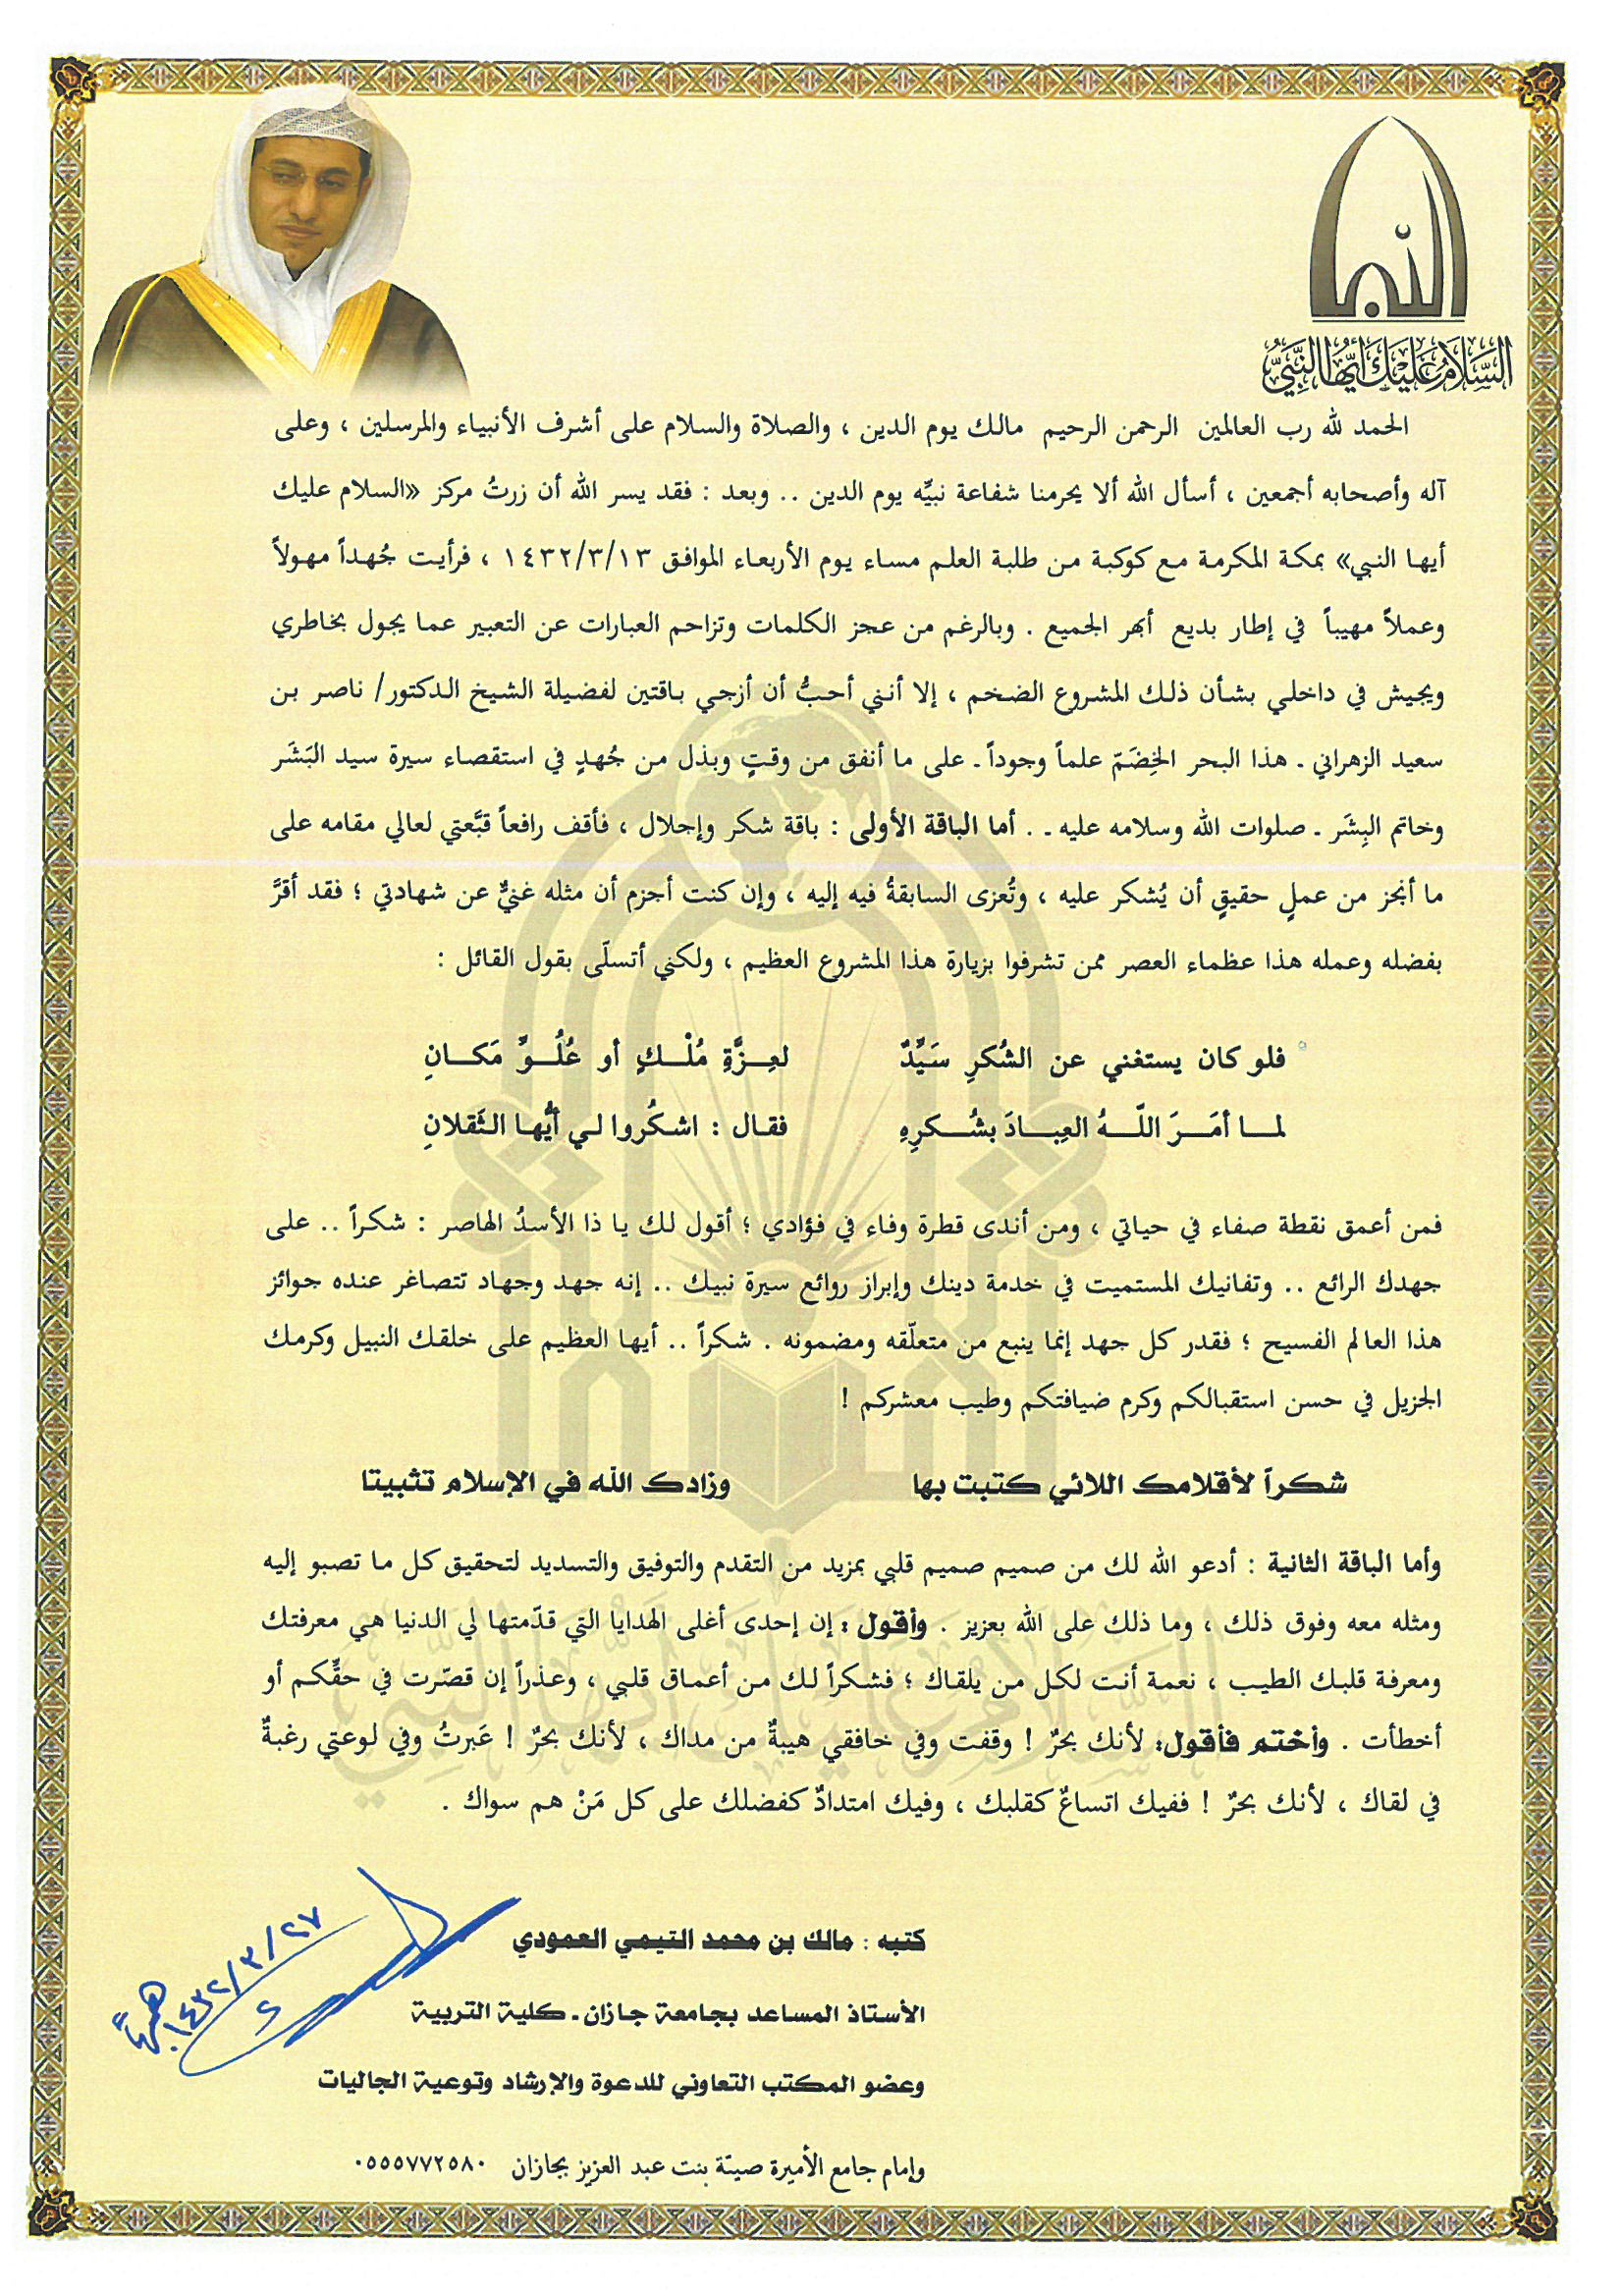 النبأ
السَّلَامُ عَلَيْكَ أَيُّهَا النَّبِيُّ
الحمد لله رب العالمين الرحمن الرحيم مالك يوم الدين ، والصلاة والسلام على أشرف الأنبياء والمرسلين ، وعلى
آله وأصحابه أجمعين ، أسأل الله ألا يحرمنا شفاعة نبيِّه يوم الدين .. وبعد : فقد يسر الله أن زرتُ مركز «السلام عليك
أيها النبي» بمكة المكرمة مع كوكبة من طلبة العلم مساء يوم الأربعاء الموافق ١٤٣٢/٣/١٣ ، فرأيت جُهداً مهولاً
وعملاً مهيباً في إطار بديع أبهر الجميع . وبالرغم من عجز الكلمات وتزاحم العبارات عن التعبير عما يجول بخاطري
ويجيش في داخلي بشأن ذلك المشروع الضخم ، إلا أنني أحبُّ أن أزجي باقتين لفضيلة الشيخ الدكتور/ ناصر بن
سعيد الزهراني ـ هذا البحر الخِضَمّ علماً وجوداً ـ على ما أنفق من وقتٍ وبذل من جُهدٍ في استقصاء سيرة سيد البَشَر
وخاتم البِشَر ـ صلوات الله وسلامه عليه ـ . أما الباقة الأولى : باقة شكر وإجلال ، فأقف رافعاً قبَّعتي لعالي مقامه على
ما أنجز من عملٍ حقيقٍ أن يُشكر عليه ، وتُعزى السابقةُ فيه إليه ، وإن كنت أجزم أن مثله غنيٌّ عن شهادتي ؛ فقد أقرَّ
بفضله وعمله هذا عظماء العصر ممن تشرفوا بزيارة هذا المشروع العظيم ، ولكني أتسلّى بقول القائل :
فلو كان يستغني عن الشُكرِ سَيِّدٌ لعِزَّةِ مُلْكٍ أو عُلُوِّ مَكانِ
لما أمَرَ اللّهُ العِبادَ بشُكرِهِ فقال : اشكُروا لي أيُّها الثَقلانِ
فمن أعمق نقطة صفاء في حياتي ، ومن أندى قطرة وفاء في فؤادي ؛ أقول لك يا ذا الأسدُ الهاصر : شكراً .. على
جهدك الرائع .. وتفانيك المستميت في خدمة دينك وإبراز روائع سيرة نبيك .. إنه جهد وجهاد تتصاغر عنده جوائز
هذا العالم الفسيح ؛ فقدر كل جهد إنما ينبع من متعلّقه ومضمونه . شكراً .. أيها العظيم على خلقك النبيل وكرمك
الجزيل في حسن استقبالكم وكرم ضيافتكم وطيب معشركم !
شكراً لأقلامك اللائي كتبت بها وزادك الله في الإسلام تثبيتا
وأما الباقة الثانية : أدعو الله لك من صميم صميم قلبي بمزيد من التقدم والتوفيق والتسديد لتحقيق كل ما تصبو إليه
ومثله معه وفوق ذلك ، وما ذلك على الله بعزيز . وأقول : إن إحدى أغلى الهدايا التي قدّمتها لي الدنيا هي معرفتك
ومعرفة قلبك الطيب ، نعمة أنت لكل من يلقاك ؛ فشكراً لك من أعماق قلبي ، وعذراً إن قصّرت في حقِّكم أو
أخطأت . وأختم فأقول: لأنك بحرٌ ! وقفت وفي خافقي هيبةٌ من مداك ، لأنك بحرٌ ! عَبرتُ وفي لوعتي رغبةٌ
في لقاك ، لأنك بحرٌ ! ففيك اتساعٌ كقلبك ، وفيك امتدادٌ كفضلك على كل مَنْ هم سواك .
كتبه : مالك بن محمد التيمي العمودي
١٤٣٢/٣/٢٧
الأستاذ المساعد بجامعة جازان ـ كلية التربية
وعضو المكتب التعاوني للدعوة والإرشاد وتوعية الجاليات
وإمام جامع الأميرة صيتة بنت عبد العزيز بجازان ٠٥٥٥٧٧٢٥٨٠